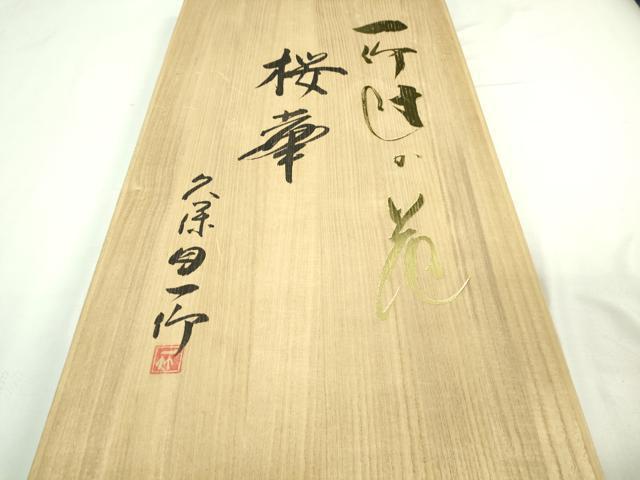 一竹辻が花
桜華
久保田一竹
一竹